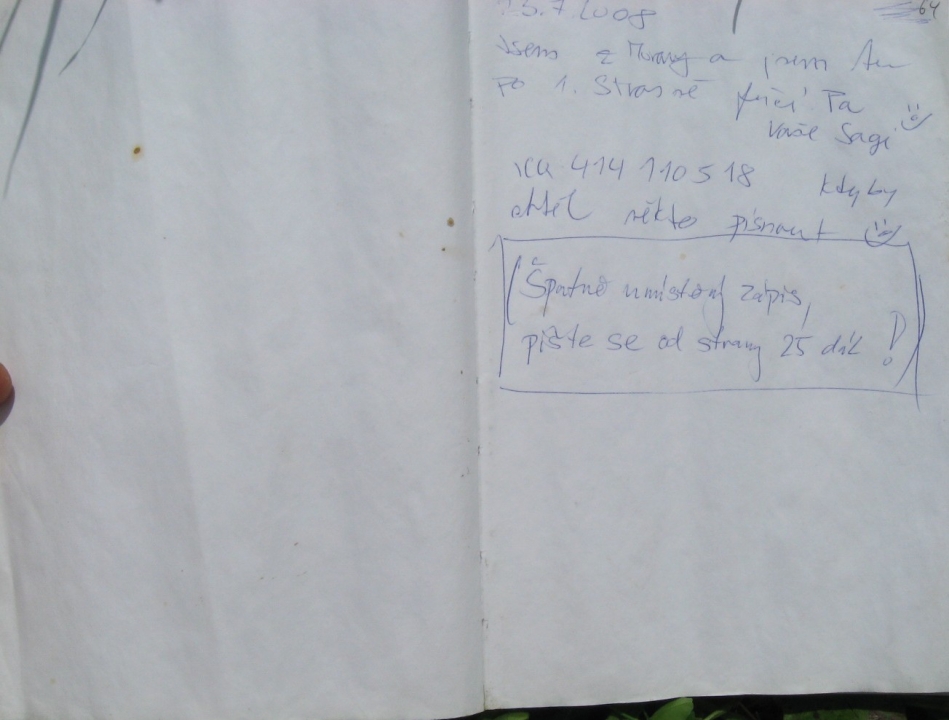 64
13.7.2008
Jsem z Moravy a jsem tu
po 1. Strašně fičí Pa
Vaše Sagi
ICQ 414 110 518 kdyby
chtěl někto písnout
(Špatně umístěný zápis,
pište se od strany 25 dál!)